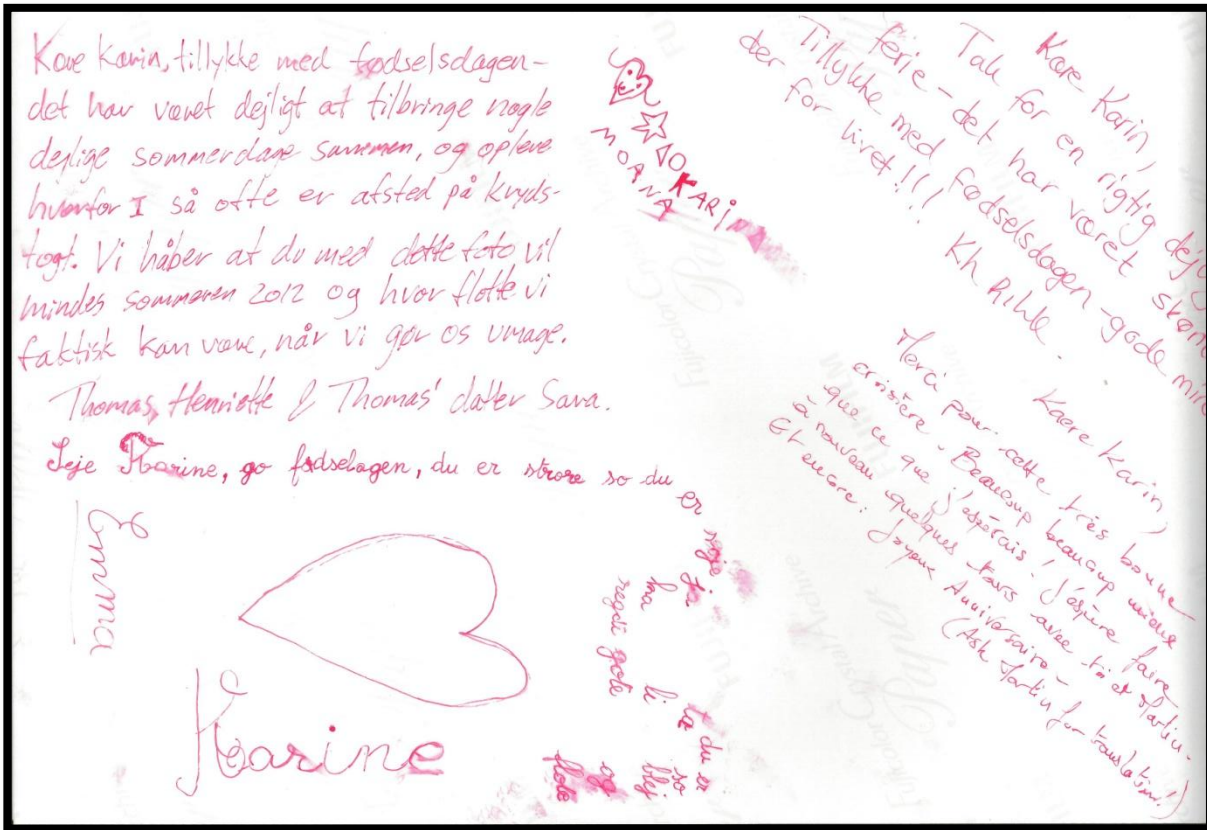 Kære Karin, tillykke med fødselsdagen -
det har været dejligt at tilbringe nogle
dejlige sommerdage sammen, og opleve
hvorfor I så ofte er afsted på kryds-
togt. Vi håber at du med dette foto vil
mindes sommeren 2012 og hvor flotte vi
faktisk kan være, når vi gør os umage.
Thomas, Henriette & Thomas' datter Sara.
Karine, go fødselagen, du er strore so du
er
du er
og
flote
Emma
Karine
KARIN
MOANA
Kære Karin,
Tak for en rigtig dejlig
ferie - det har været skønt
Tillykke med fødselsdagen - gode
der for livet!!!
Kh
Kære Karin,
Merci pour cette très bonne
croisière. Beaucoup beaucoup mieux
que ce que j'espérais! J'espère faire
à nouveau quelques tours avec toi et Martin.
Et encore: Joyeux Anniversaire
(Ask Martin for translation!)